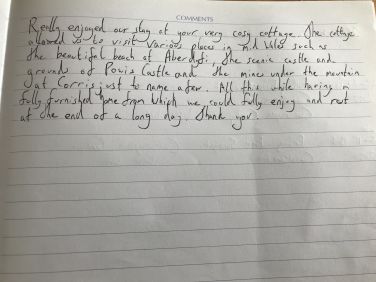 COMMENTS
Really enjoyed our stay at your very cosy cottage. The cottage
allowed us to visit various places in mid Wales such as
the beautiful beach at Aberdyfi, the scenic castle and
grounds of Powis Castle and the mines under the mountain
at Corris just to name a few. All this while having a
fully furnished home from which we could fully enjoy and rest
at the end of a long day. Thank you.